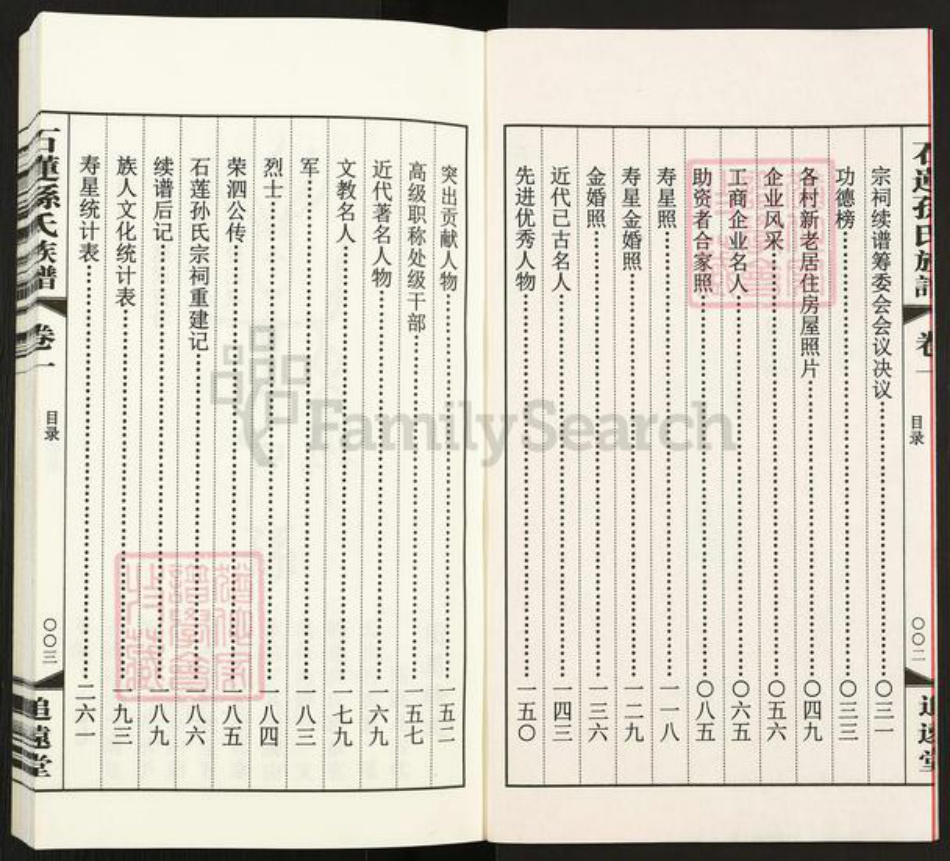 石莲孙氏族谱 卷一 目录 〇〇二 追远堂
宗祠续谱筹委会会议决议……〇三一
功德榜……〇三三
各村新老居住房屋照片……〇四九
企业风采……〇五六
工商企业名人……〇六五
助资者合家照……〇八五
寿星照……一一八
寿星金婚照……一二九
金婚照……一三六
近代已古名人……一四三
先进优秀人物……一五〇
突出贡献人物……一五二
高级职称处级干部……一五七
近代著名人物……一六九
文教名人……一七九
军……一八三
烈士……一八四
荣泗公传……一八五
石莲孙氏宗祠重建记……一八六
续谱后记……一八九
族人文化统计表……一九三
寿星统计表……二六一
石蓮孫氏族譜 卷一 目录 〇〇三 追遠堂
FamilySearch